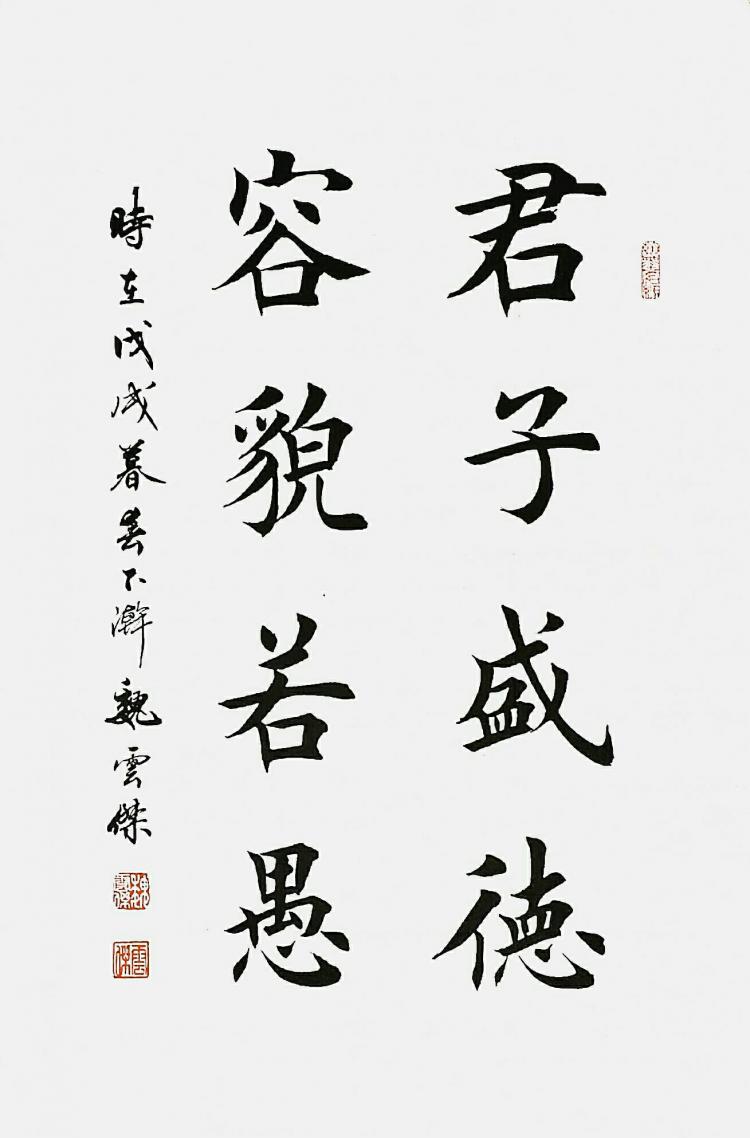 君子盛德
容貌若愚
時在戊戌暮春下澣魏雲傑
魏雲傑
雲傑